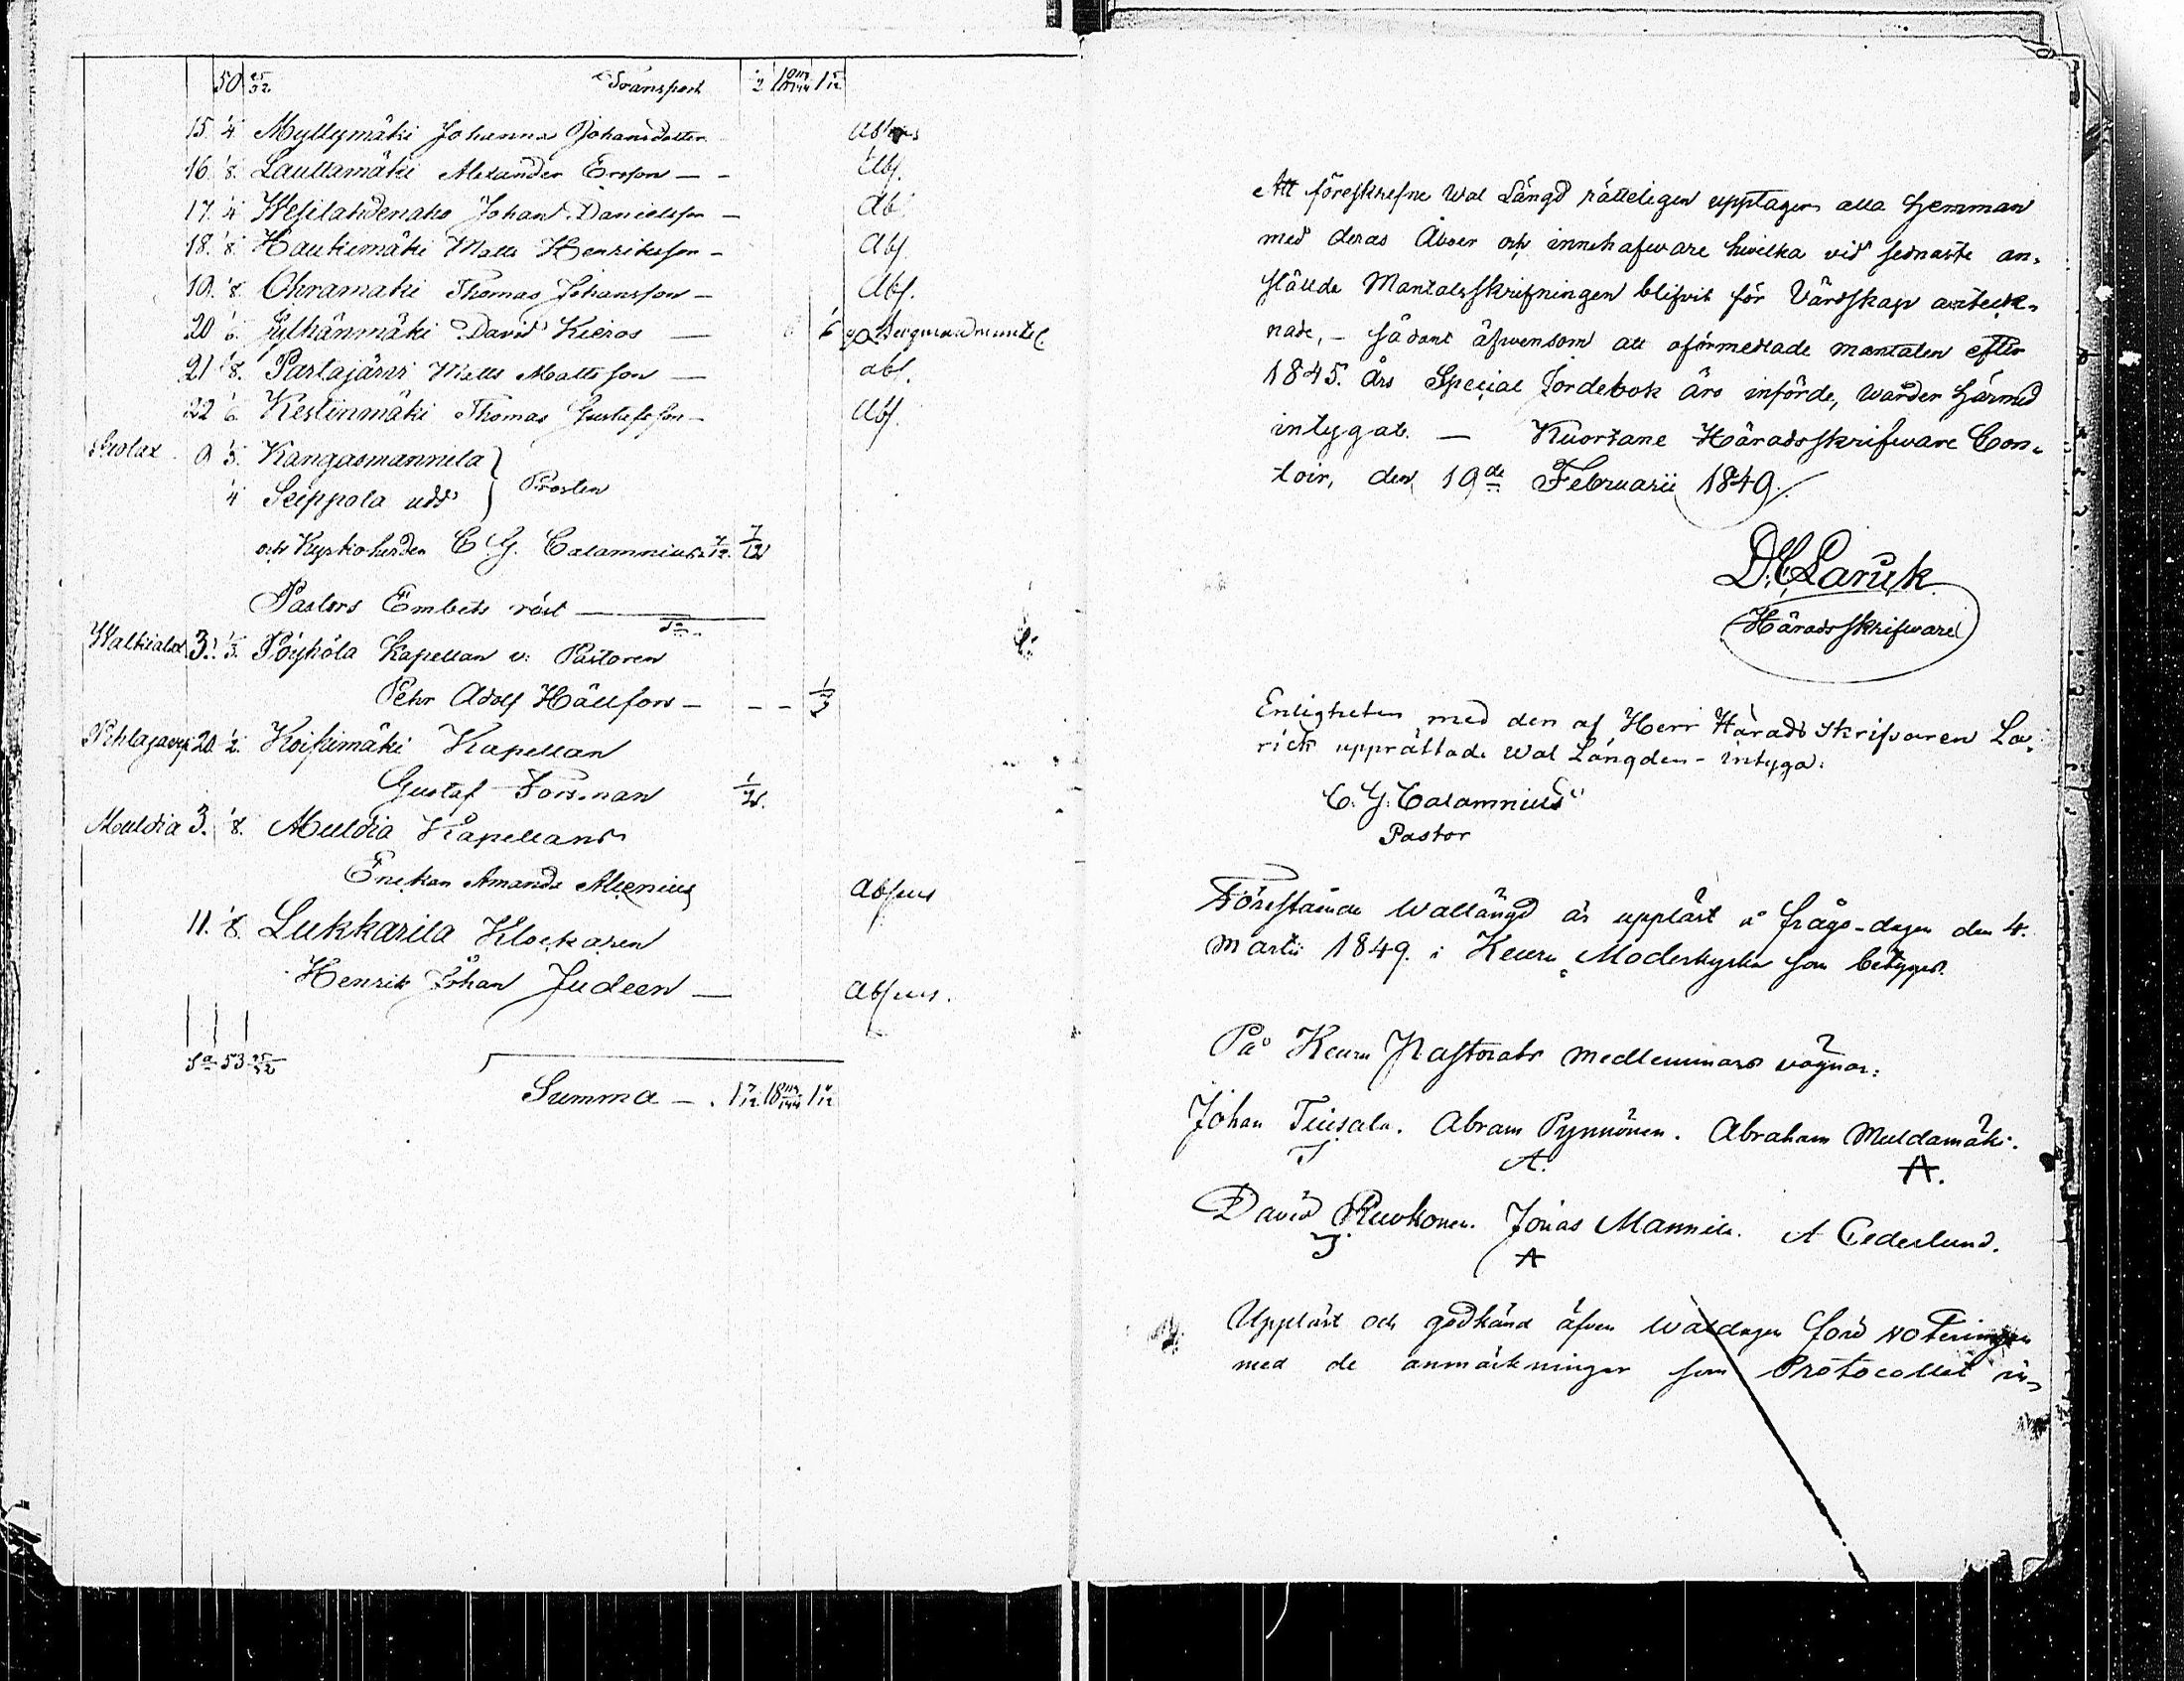 50 25/32 Transport 1/2
15. 1/4 Myllymäki Johanna Johansdotter Absens
16. 1/8. Lauttamäki Alexander Ersson — - Abs.
17. 1/4 Wesilahdenaho Johan Danielsson — Abs.
18. 1/8. Haukimäki Matts Henriksson - Abs.
19. 1/8. Ohramäki Thomas Johansson — Abs.
20 1/6. Jylhänmäki David Kieros — 1/6
21 1/8. Partajärvi Matts Mattsson — abs.
22 1/6. Kestinmäki Thomas Gustafsson — Abs.
9 1/3. Kangasmannila
1/4 Seippola udd Prosten
och Kyrkoherden C G. Calamnius 7/12. 7/12
Pastors Embets röst —
3. 1/3. Pöyhölä Kapellan v: Pastoren
Pehr Adolf Hällfors — - - 1/3
20. 1/2. Koikimäki Kapellan
Gustaf Forsman 1/2.
Muldia 3. 1/8. Muldia Kapellans
Enckan Amanda Alcenius Absens
11. 1/8. Lukkarila Klockaren
Henrik Johan Judeen — Absens.
Sa 53 25/32
Summa — . 1 7/12. 18 113/144 1 4/12
Att föreskrefne Wal Längd rätteligen upptager alla Hemman
med deras Åboer och innehafware hwilka vid sednaste an-
ställde Mantalsskrifningen blifvit för Värdskap anteck-
nade, – sådant äfwensom att oförmedlade mantalen efter
1845. Års Special Jordebok äro införde, warder härmed
intygat. — Kuortane Häradsskrifware Con-
toir, den 19de Februarii 1849.
Häradsskrifware
Enligheten med den af Herr Häradsskrifvaren La-
rick upprättade Wal Längden - intygar.
C. G. Calamnius
Pastor
Förestående Wallängd är uppläst å frågo-dagen den 4.
Martii 1849. i Keuru Moderkyrka som betygas.
På Keuru Pastorats medlemmars vägnar:
Johan Tiusala. Abram Pynnönen. Abraham Muldamäki.
A. A.
David Ruokonen. Jonas Mannila. A Cederlund.
A
Uppläst och godkänd äfven Waldagen före voteringen
med de anmärkningar som Protocollet in-